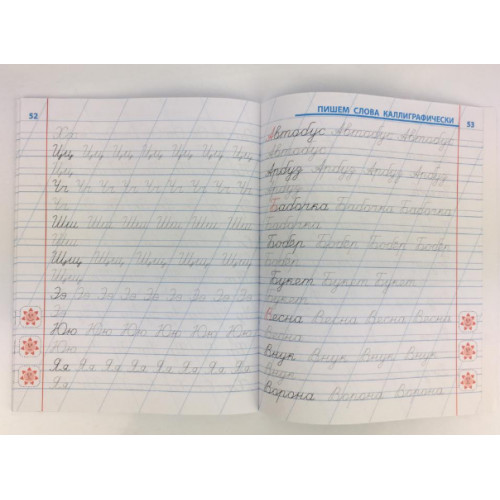 52
Хх
Цц Цц Цц Цц Цц Цц Цц
Цц
Чч Чч Чч Чч Чч Чч Чч Чч
Чч
Шш Шш Шш Шш Шш Шш
Шш
Щщ Щщ Щщ Щщ Щщ
Щщ
Ээ Ээ Ээ Ээ Ээ Ээ Ээ Ээ
Ээ
Юю Юю Юю Юю Юю Юю
Юю
Яя Яя Яя Яя Яя Яя Яя Яя
Яя
ПИШЕМ СЛОВА КАЛЛИГРАФИЧЕСКИ
53
Автобус Автобус Автобус
Автобус
Арбуз Арбуз Арбуз Арбуз
Арбуз
Бабочка Бабочка Бабочка
Бабочка
Бобёр Бобёр Бобёр Бобёр
Бобёр
Букет Букет Букет
Букет
Весна Весна Весна Весна
Весна
Внук Внук Внук Внук
Внук
Ворона Ворона Ворона